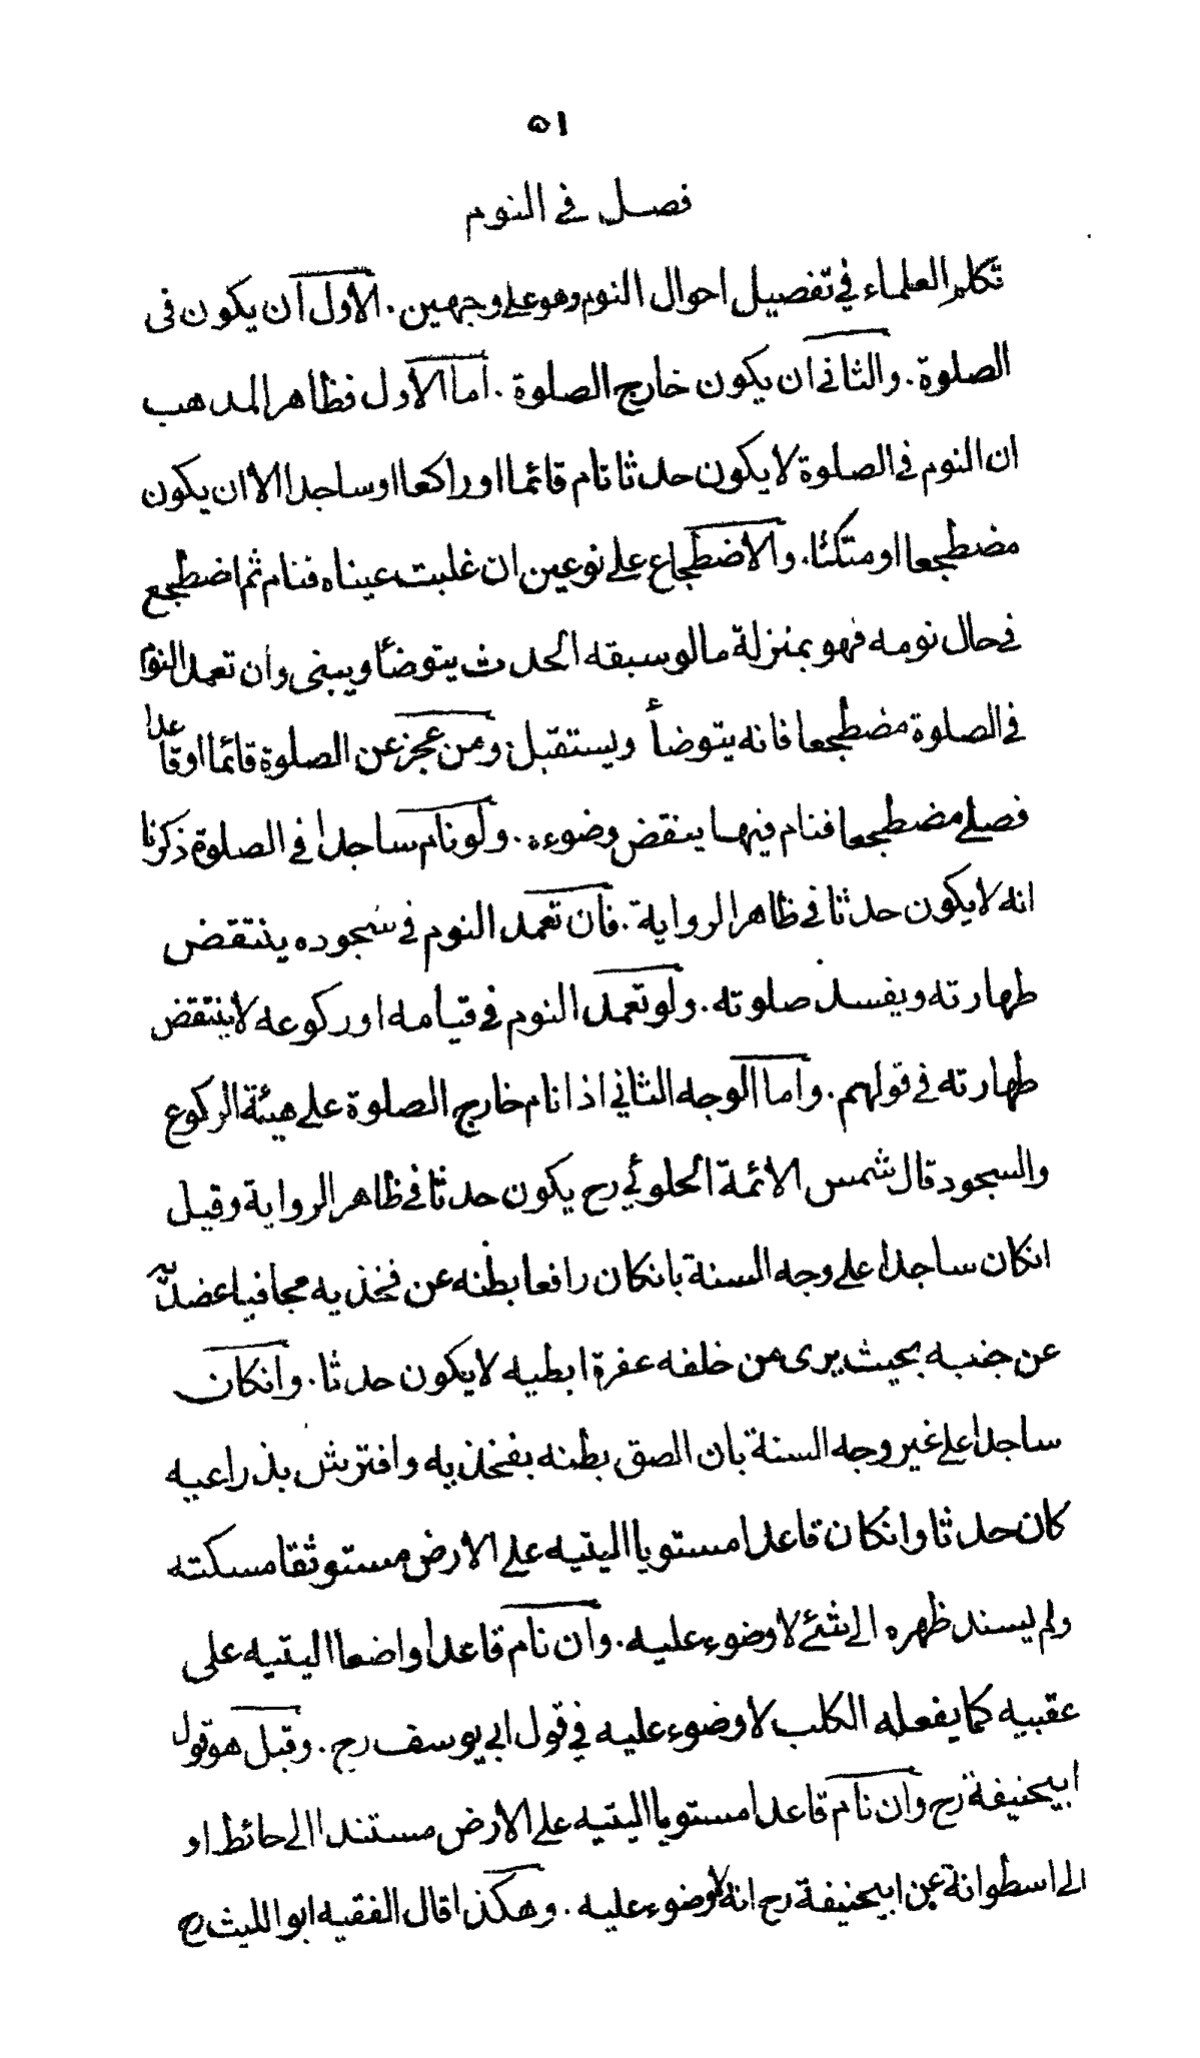 ٥١
فصل في النوم
تكلم العلماء في تفصيل احوال النوم وهو على وجهين . الاول ان يكون فى
الصلوة . والثاني ان يكون خارج الصلوة . اما الاول فظاهر المذهب
ان النوم في الصلوة لا يكون حدثا نام قائما او راكعا او ساجدا الا ان يكون
مضطجعا او متكئا . والاضطجاع على نوعين ان غلبت عيناه فنام ثم اضطجع
في حال نومه فهو بمنزلة ما لو سبقه الحدث يتوضأ ويبنى وان تعمد النوم
في الصلوة مضطجعا فانه يتوضأ ويستقبل ومن عجز عن الصلوة قائما او قاعدا
فصلى مضطجعا فنام فيها ينقض وضوءه . ولو نام ساجدا في الصلوة ذكرنا
انه لا يكون حدثا في ظاهر الرواية . فان تعمد النوم في سجوده ينتقض
طهارته ويفسد صلوته . ولو تعمد النوم في قيامه او ركوعه لا ينتقض
طهارته في قولهم . واما الوجه الثاني اذا نام خارج الصلوة على هيئة الركوع
والسجود قال شمس الائمة الحلوئي رح يكون حدثا في ظاهر الرواية وقيل
انكان ساجدا على وجه السنة بانكان رافعا بطنه عن فخذيه مجافيا عضديه
عن جنبه بحيث يرى من خلفه عفرة ابطيه لا يكون حدثا . وانكان
ساجدا على غير وجه السنة بان الصق بطنه بفخذيه وافترش بذراعيه
كان حدثا وانكان قاعدا مستويا اليتيه على الارض مستوثقا مسكته
ولم يسند ظهره الى شئ لا وضوء عليه . وان نام قاعدا واضعا اليتيه على
عقبيه كما يفعله الكلب لا وضوء عليه في قول ابي يوسف رح . وقيل هو قول
ابيحنيفة رح وان نام قاعدا مستويا اليتيه على الارض مستندا الى حائط او
الى اسطوانة عن ابيحنيفة رح انه لا وضوء عليه . وهكذا قال الفقيه ابو الليث رح